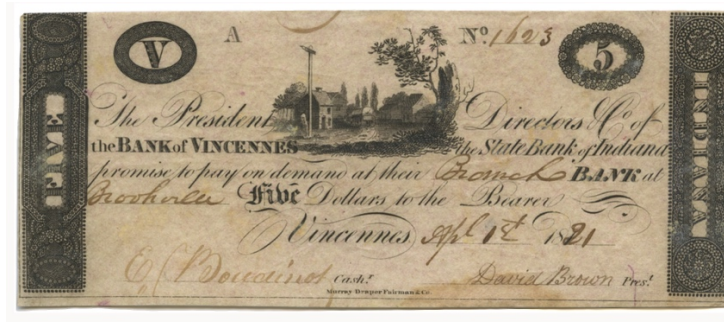 V A Nº 1623 5
FIVE
INDIANA
The President Directors & Co. of
the BANK of VINCENNES the State Bank of Indiana
promise to pay on demand at their Branch BANK at
Brookville Five Dollars to the Bearer
Vincennes Apl 1st 1821
E. Boudinot Cashr. David Brown Prest.
Murray Draper Fairman & Co.